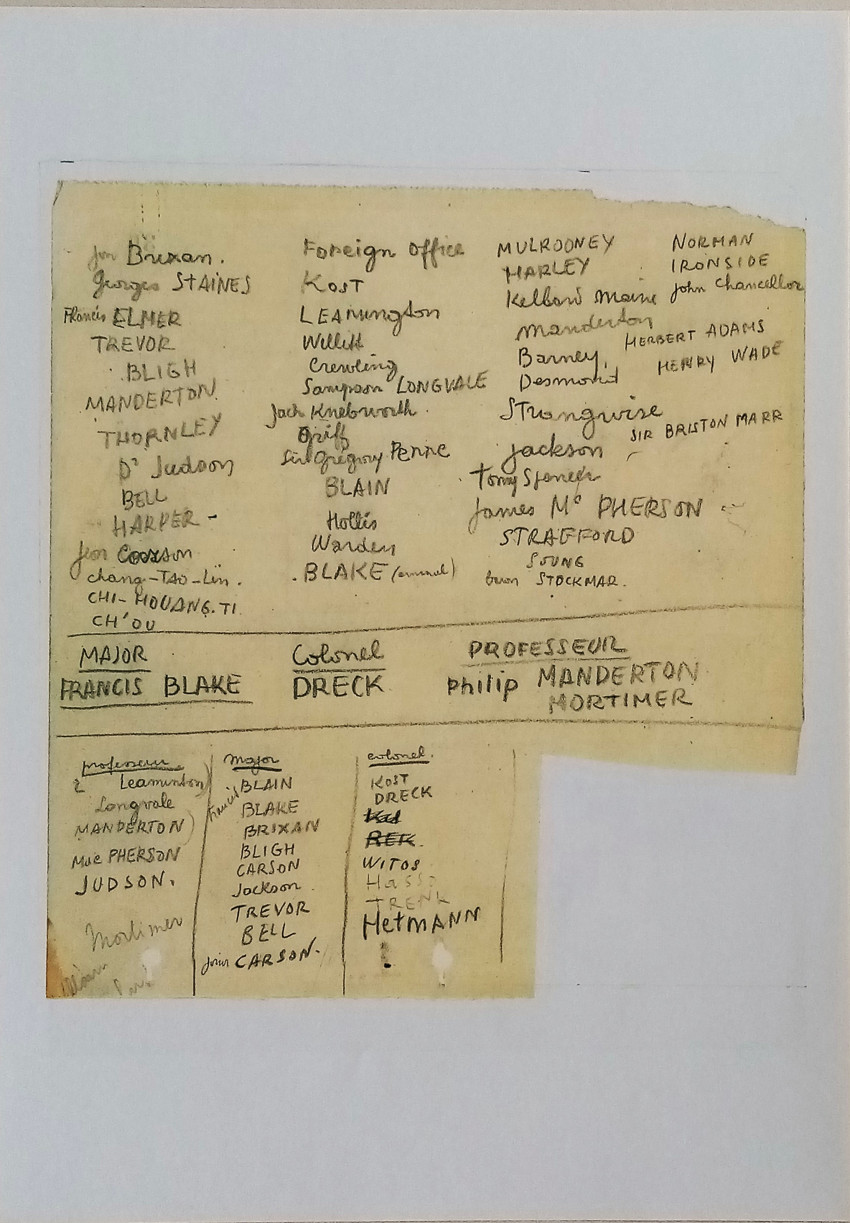 Brixan.
Georges STAINES
Francis ELMER
TREVOR
BLIGH
MANDERTON
THORNLEY
Dr Judson
BELL
HARPER -
Jeon
chang-TAO-Lin.
CHI-HOUANG.TI
CH'OU
Foreign Office
KOST
LEAMington
Willitt
Crewling
Sampson LONGVALE
Jack Knebworth.
Griff
Sir Gregory Penne
BLAIN
Hollis
Warden
. BLAKE (criminal)
MULROONEY
HARLEY
Kellard Maine
Manderton
Barney
Desmond
Strangwise
Jackson
Tomy Spencer
James Mc PHERSON
STRAFFORD
SOUNG
baron STOCKMAR.
NORMAN
IRONSIDE
John Chancellor
HERBERT ADAMS
HENRY WADE
SIR BRISTON MARR
MAJOR
FRANCIS BLAKE
Colonel
DRECK
PROFESSEUR
Philip MANDERTON
MORTIMER
professeur
Leaminton
Longvale
MANDERTON
Mac PHERSON
JUDSON.
Mortimer
major
BLAIN
Francis BLAKE
BRIXAN
BLIGH
CARSON
Jackson.
TREVOR
BELL
CARSON.
colonel.
KOST
DRECK
REK.
WITOS
HASS-
TRENK
HetMANN